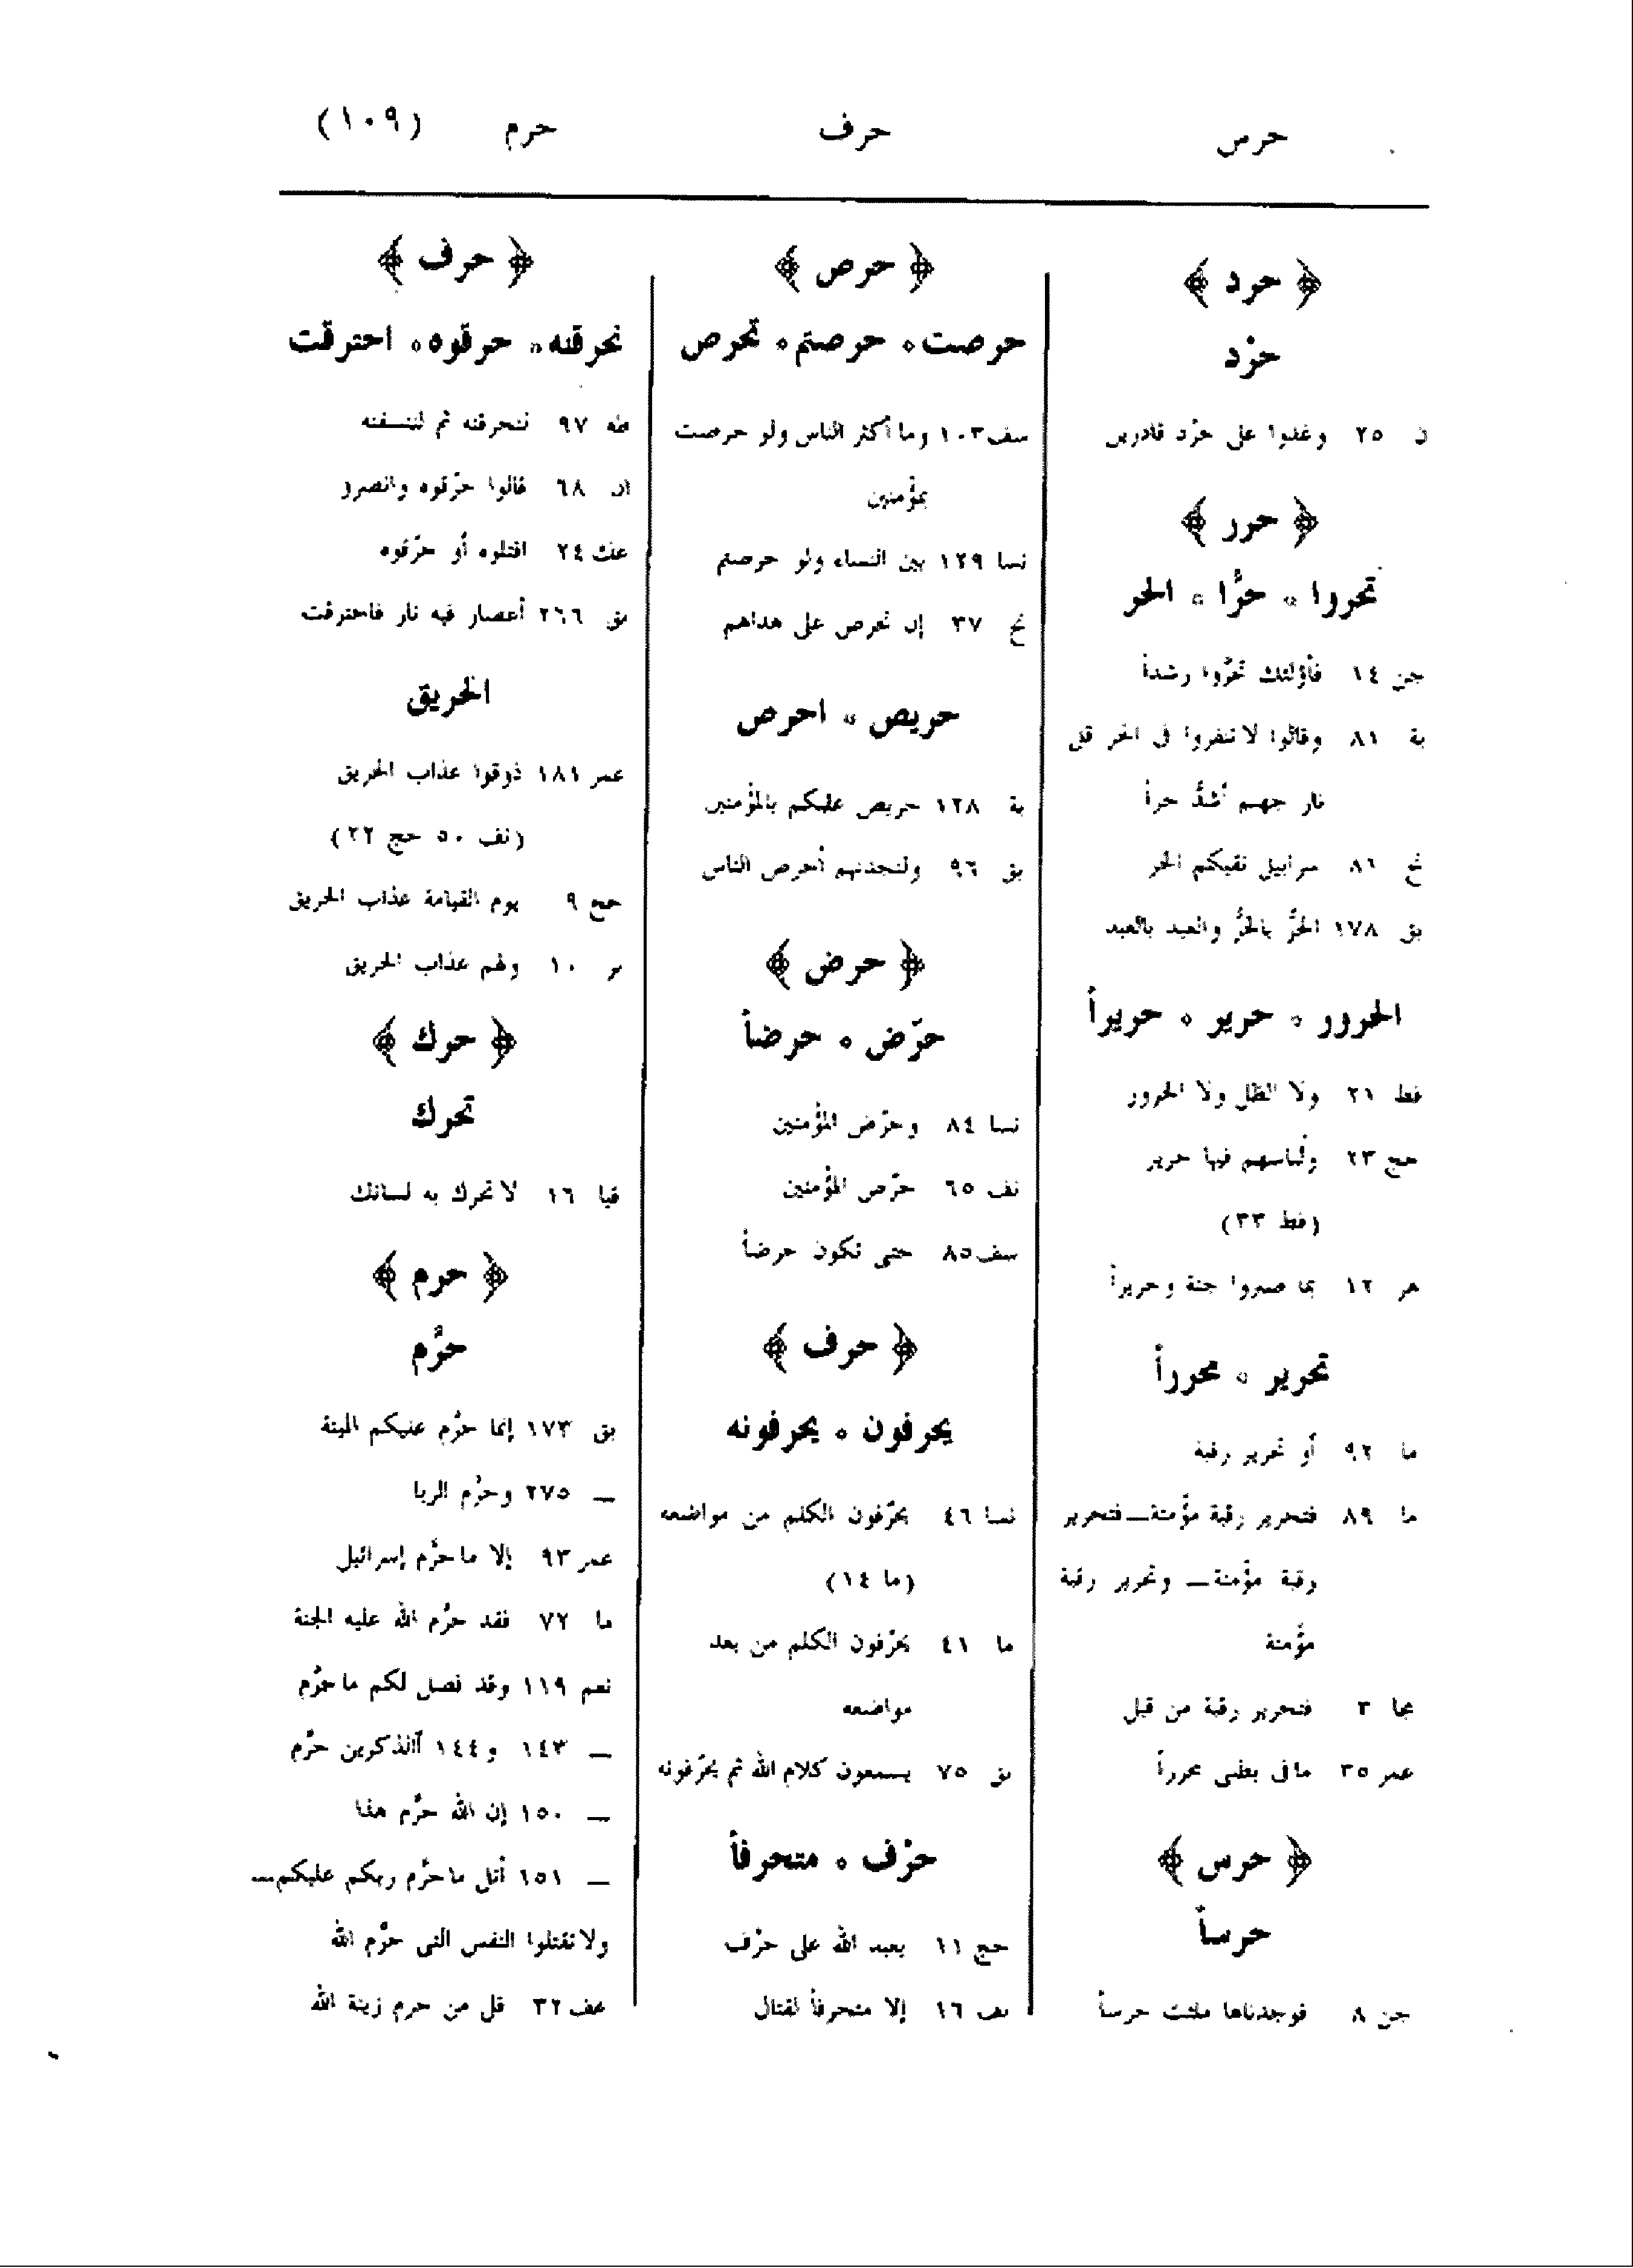 حرس حرف حرم (١٠٩)
﴿ حرد ﴾
حرْد
ن ٢٥ وغدوا على حرْد قادرين
﴿ حرر ﴾
تحروا ٥ حرًّا ٥ الحر
جن ١٤ فأولئك تحرَّوا رشداً
بة ٨١ وقالوا لا تنفروا فى الحر قل
نار جهنم أشدُّ حراً
نح ٨١ سرابيل تقيكم الحر
بق ١٧٨ الحرُّ بالحرُّ والعبد بالعبد
الحرور ٥ حرير ٥ حريراً
فط ٢١ ولا الظل ولا الحرور
حج ٢٣ ولباسهم فيها حرير
(فط ٣٣)
هر ١٢ بما صبروا جنة وحريراً
تحرير ٥ محرراً
ما ٩٢ أو تحرير رقبة
ما ٨٩ فتحرير رقبة مؤمنة ــ فتحرير
رقبة مؤمنة ــ وتحرير رقبة
مؤمنة
مجا ٣ فتحرير رقبة من قبل
عمر ٣٥ ما فى بطنى محرراً
﴿ حرس ﴾
حرساً
جن ٨ فوجدناها ملئت حرساً
﴿ حرص ﴾
حرصت ٥ حرصتم ٥ تحرص
سف ١٠٣ وما أكثر الناس ولو حرصت
بمؤمنين
نسا ١٢٩ بين النساء ولو حرصتم
نح ٣٧ إن تحرص على هداهم
حريص ٥ احرص
بة ١٢٨ حريص عليكم بالمؤمنين
بق ٩٦ ولتجدنهم أحرص الناس
﴿ حرض ﴾
حرّض ٥ حرضاً
نسا ٨٤ وحرّض المؤمنين
نف ٦٥ حرّض المؤمنين
سف ٨٥ حتى تكون حرضاً
﴿ حرف ﴾
يحرفون ٥ يحرفونه
نسا ٤٦ يحرّفون الكلم من مواضعه
(ما ١٤)
ما ٤١ يحرّفون الكلم من بعد
مواضعه
بق ٧٥ يسمعون كلام الله ثم يحرّفونه
حرْف ٥ متحرفاً
حج ١١ يعبد الله على حرْف
نف ١٦ إلا متحرفاً لقتال
﴿ حرف ﴾
نحرقنه ٥ حرقوه ٥ احترقت
طه ٩٧ لنحرقنه ثم لننسفنه
ان ٦٨ قالوا حرّقوه وانصرو
عنك ٢٤ اقتلوه أو حرّقوه
بق ٢٦٦ أعصار فيه نار فاحترقت
الحريق
عمر ١٨١ ذوقوا عذاب الحريق
(نف ٥٠ حج ٢٢)
حج ٩ يوم القيامة عذاب الحريق
بر ١٠ ولهم عذاب الحريق
﴿ حرك ﴾
تحرك
قيا ١٦ لا تحرك به لسانك
﴿ حرم ﴾
حرَّم
بق ١٧٣ إنما حرَّم عليكم الميتة
ــ ٢٧٥ وحرَّم الربا
عمر ٩٣ إلا ما حرَّم إسرائيل
ما ٧٢ فقد حرَّم الله عليه الجنة
نعم ١١٩ وقد فصل لكم ما حرَّم
ــ ١٤٣ و ١٤٤ آلذكرين حرَّم
ــ ١٥٠ إن الله حرَّم هذا
ــ ١٥١ أتل ما حرَّم ربكم عليكم ــ
ولا تقتلوا النفس التى حرَّم الله
عف ٣٢ قل من حرم زينة الله